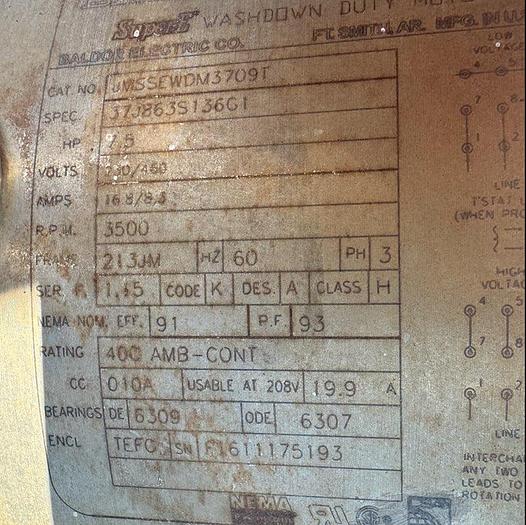 Super-E WASHDOWN DUTY
BALDOR ELECTRIC CO. FT. SMITH, AR. MFG. IN U
CAT. NO. JMSSEWDM3709T
SPEC. 37J863S136G1
HP 7.5
VOLTS 230/460
AMPS 16.8/8.4
R.P.M. 3500
FRAME 213JM HZ 60 PH 3
SER. F. 1.15 CODE K DES. A CLASS H
NEMA NOM. EFF. 91 P.F. 93
RATING 40C AMB-CONT
CC 010A USABLE AT 208V 19.9 A
BEARINGS DE 6309 ODE 6307
ENCL TEFC SN F1611175193
NEMA
LOW
VOLTAG
4 5
7 8
1 2
LINE
T'STAT
(WHEN PRO
HIGH
VOLTAG
4 5
7 8
1 2
LINE
INTERCHA
ANY TWO
LEADS TO
ROTATION